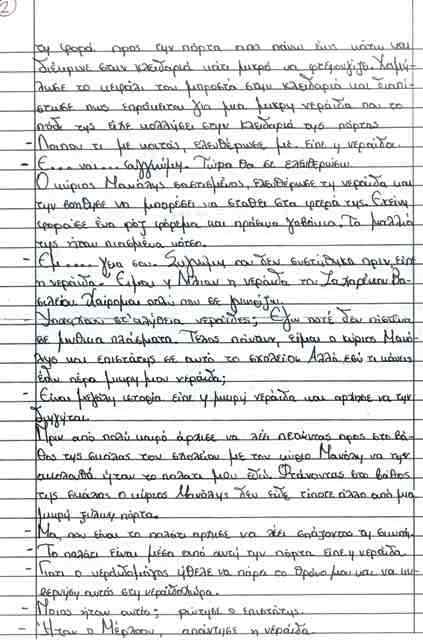 2
τη φορά προς την πόρτα από πάνω έως κάτω και
διέκρινε στην κλειδαριά κάτι μικρό να φτερουγίζει. Χαμή-
λωσε το κεφάλι του μπροστά στην κλειδαριά και διαπί-
στωσε πως επρόκειτο για μια μικρή νεράιδα που το
πόδι της είχε κολλήσει στην κλειδαριά της πόρτας
- Παππου τι με κοιτάς, ελευθέρωσέ με. Είπε η νεράιδα.
- Ε... ναι... συγγνώμη. Τώρα θα σε ελευθερώσω
Ο κύριος Μανώλης σαστισμένος, ελευθέρωσε τη νεράιδα και
την βοήθησε να μπορέσει να σταθεί στα φτερά της. Εκείνη
φορούσε ένα ροζ φόρεμα και πράσινα γοβάκια. Τα μαλλιά
της ήταν πιασμένα κότσο.
- Εμ.... γεια σου. Συγγνώμη που δεν συστήθηκα πριν, είπε
η νεράιδα. Είμαι η Λίλιαν η νεράιδα του Ζαχαρένιου Βα-
σιλείου. Χαίρομαι πολύ που σε γνωρίζω.
- Υπάρχουν στ' αλήθεια νεράιδες; Εγώ ποτέ δεν πίστευα
σε μυθικά πλάσματα. Τέλος πάντων, είμαι ο κύριος Μανώ-
λης και επιστάτης σε αυτό το σχολείο. Αλλά εσύ τι κάνεις
εδώ πέρα μικρή μου νεράιδα;
- Είναι μεγάλη ιστορία είπε η μικρή νεράιδα και άρχισε να την
διηγήται.
Πριν από πολύ καιρό άρχισε να λέη πετώντας προς στο βά-
θος της σκάλας του σχολείου με τον κύριο Μανώλη να την
ακολουθά ήταν το παλάτι μου εδώ. Φτάνοντας στο βάθος
της σκάλας ο κύριος Μανώλης δεν είδε τίποτε άλλο από μια
μικρή ξύλινη πόρτα.
- Μα, που είναι το παλάτι άρχισε να λέει σπάζοντας τη σιωπή.
- Το παλάτι είναι μέσα από αυτή την πόρτα είπε η νεράιδα.
- Γιατί ο νεραϊδομάγος ήθελε να πάρει το θρόνο μου και να κυ-
βερνήσει αυτός στη νεραϊδοχώρα.
- Ποιος ήταν αυτός; ρώτησε ο επιστάτης.
- Ήταν ο Μέρλοου, απάντησε η νεράιδα